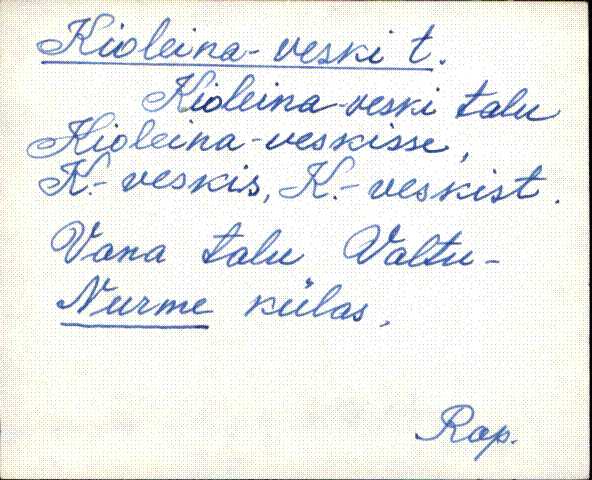 Kioleina-veski t.
Kioleina-veski talu
Kioleina-veskisse,
K.-veskis, K.-veskist.
Vana talu Valtu-
Nurme külas.
Rap.